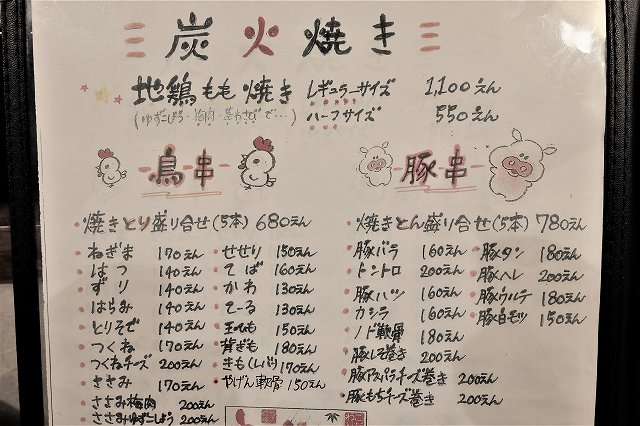 炭火焼き
地鶏もも焼き レギュラーサイズ 1,100えん
(ゆずこしょう・梅肉・茎わさびで…) ハーフサイズ 550えん
鳥串
焼きとり盛り合せ(5本) 680えん
ねぎま 170えん
はつ 140えん
ずり 140えん
はらみ 140えん
とりそで 140えん
つくね 170えん
つくねチーズ 200えん
ささみ 170えん
ささみ梅肉 200えん
ささみゆずこしょう 200えん
せせり 150えん
てば 160えん
かわ 130えん
てーる 130えん
玉ひも 150えん
背ぎも 180えん
きも(レバー) 170えん
やげん軟骨 150えん
豚串
焼きとん盛り合せ(5本) 780えん
豚バラ 160えん
トントロ 200えん
豚ハツ 160えん
カシラ 160えん
ノド軟骨 180えん
豚しそ巻き 200えん
豚アスパラチーズ巻き 200えん
豚もちチーズ巻き 200えん
豚タン 180えん
豚ヘレ 200えん
豚ウルテ 180えん
豚白モツ 150えん